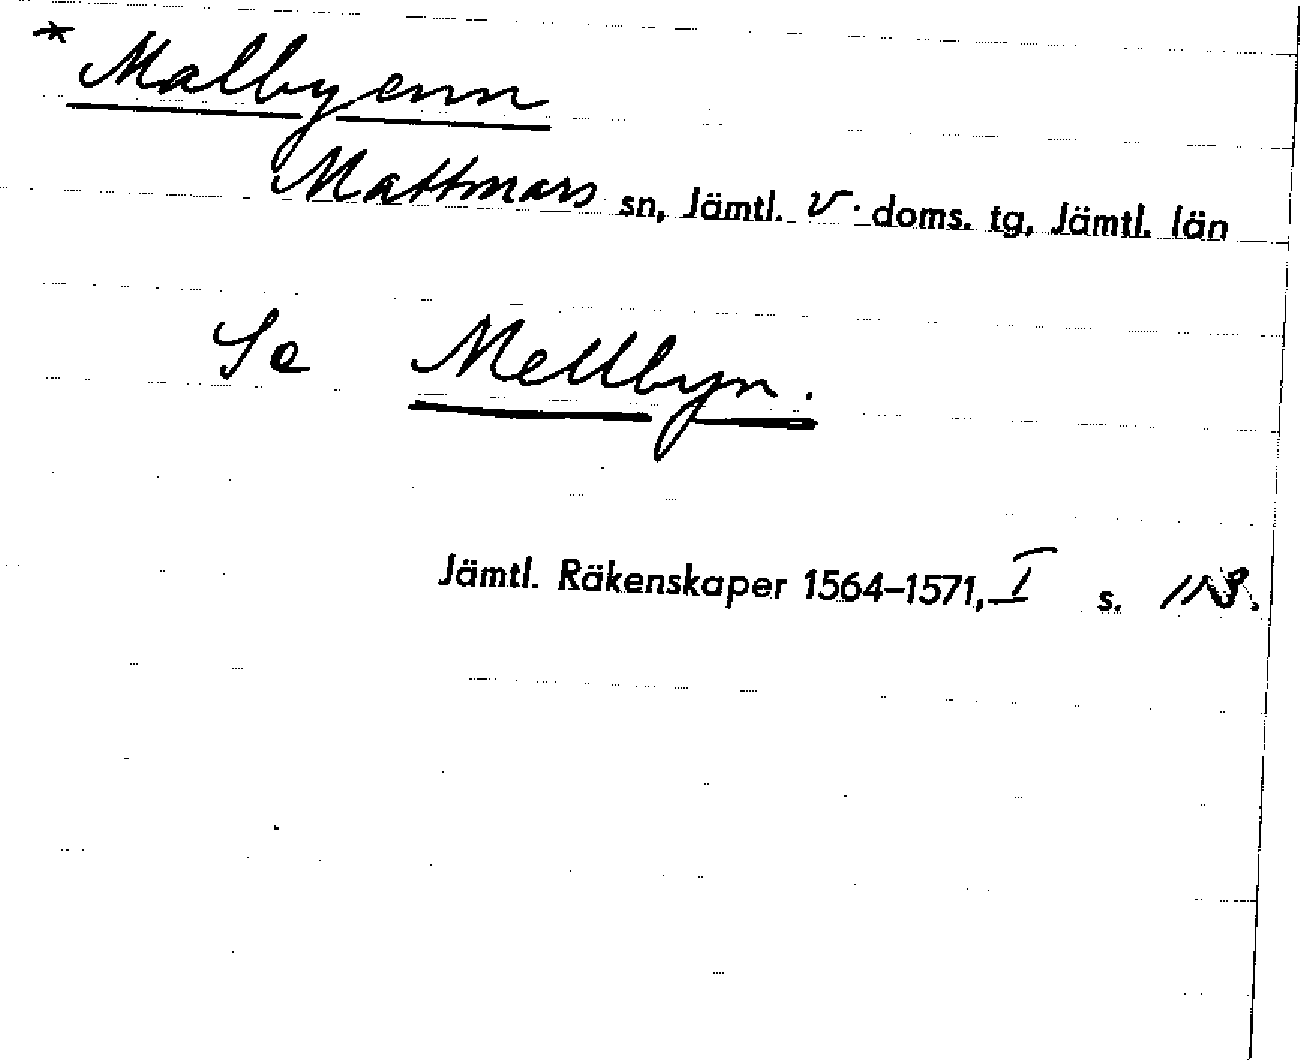 * Malbyenn
Mattmars sn, Jämtl. v. doms. tg, Jämtl. län
Se Mellbyn.
Jämtl. Räkenskaper 1564–1571, I s.